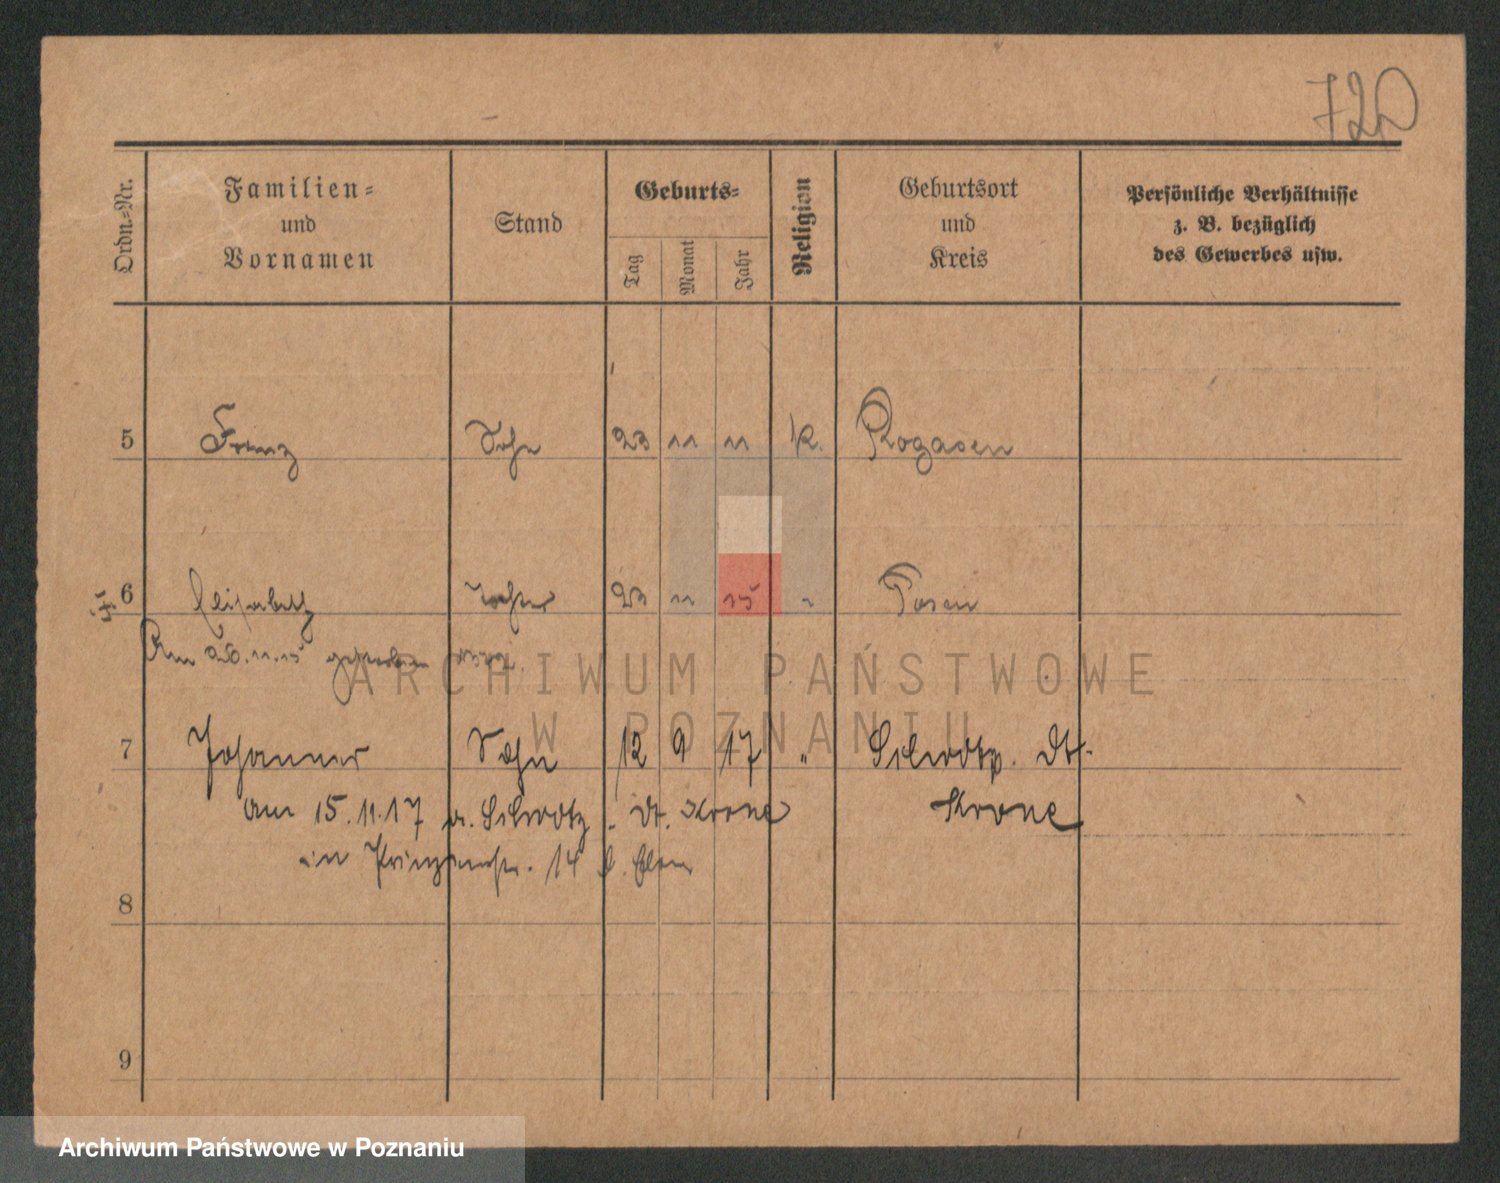 720
Ordn.-Nr.
Familien-
und
Vornamen
Stand
Geburts-
Tag
Monat
Jahr
Religion
Geburtsort
und
Kreis
Persönliche Verhältnisse
z. B. bezüglich
des Gewerbes usw.
5 Franz Sohn 23 11 11 k. Rogasen
6 Elisabeth Tochter 23 11 15 " Posen
Am 26.11.15 gestorben
7 Johannes Sohn 12 9 17 " Dt.
am 15.11.17 Dt. Krone Krone
in 14
8
9
ARCHIWUM PAŃSTWOWE
W POZNANIU
Archiwum Państwowe w Poznaniu